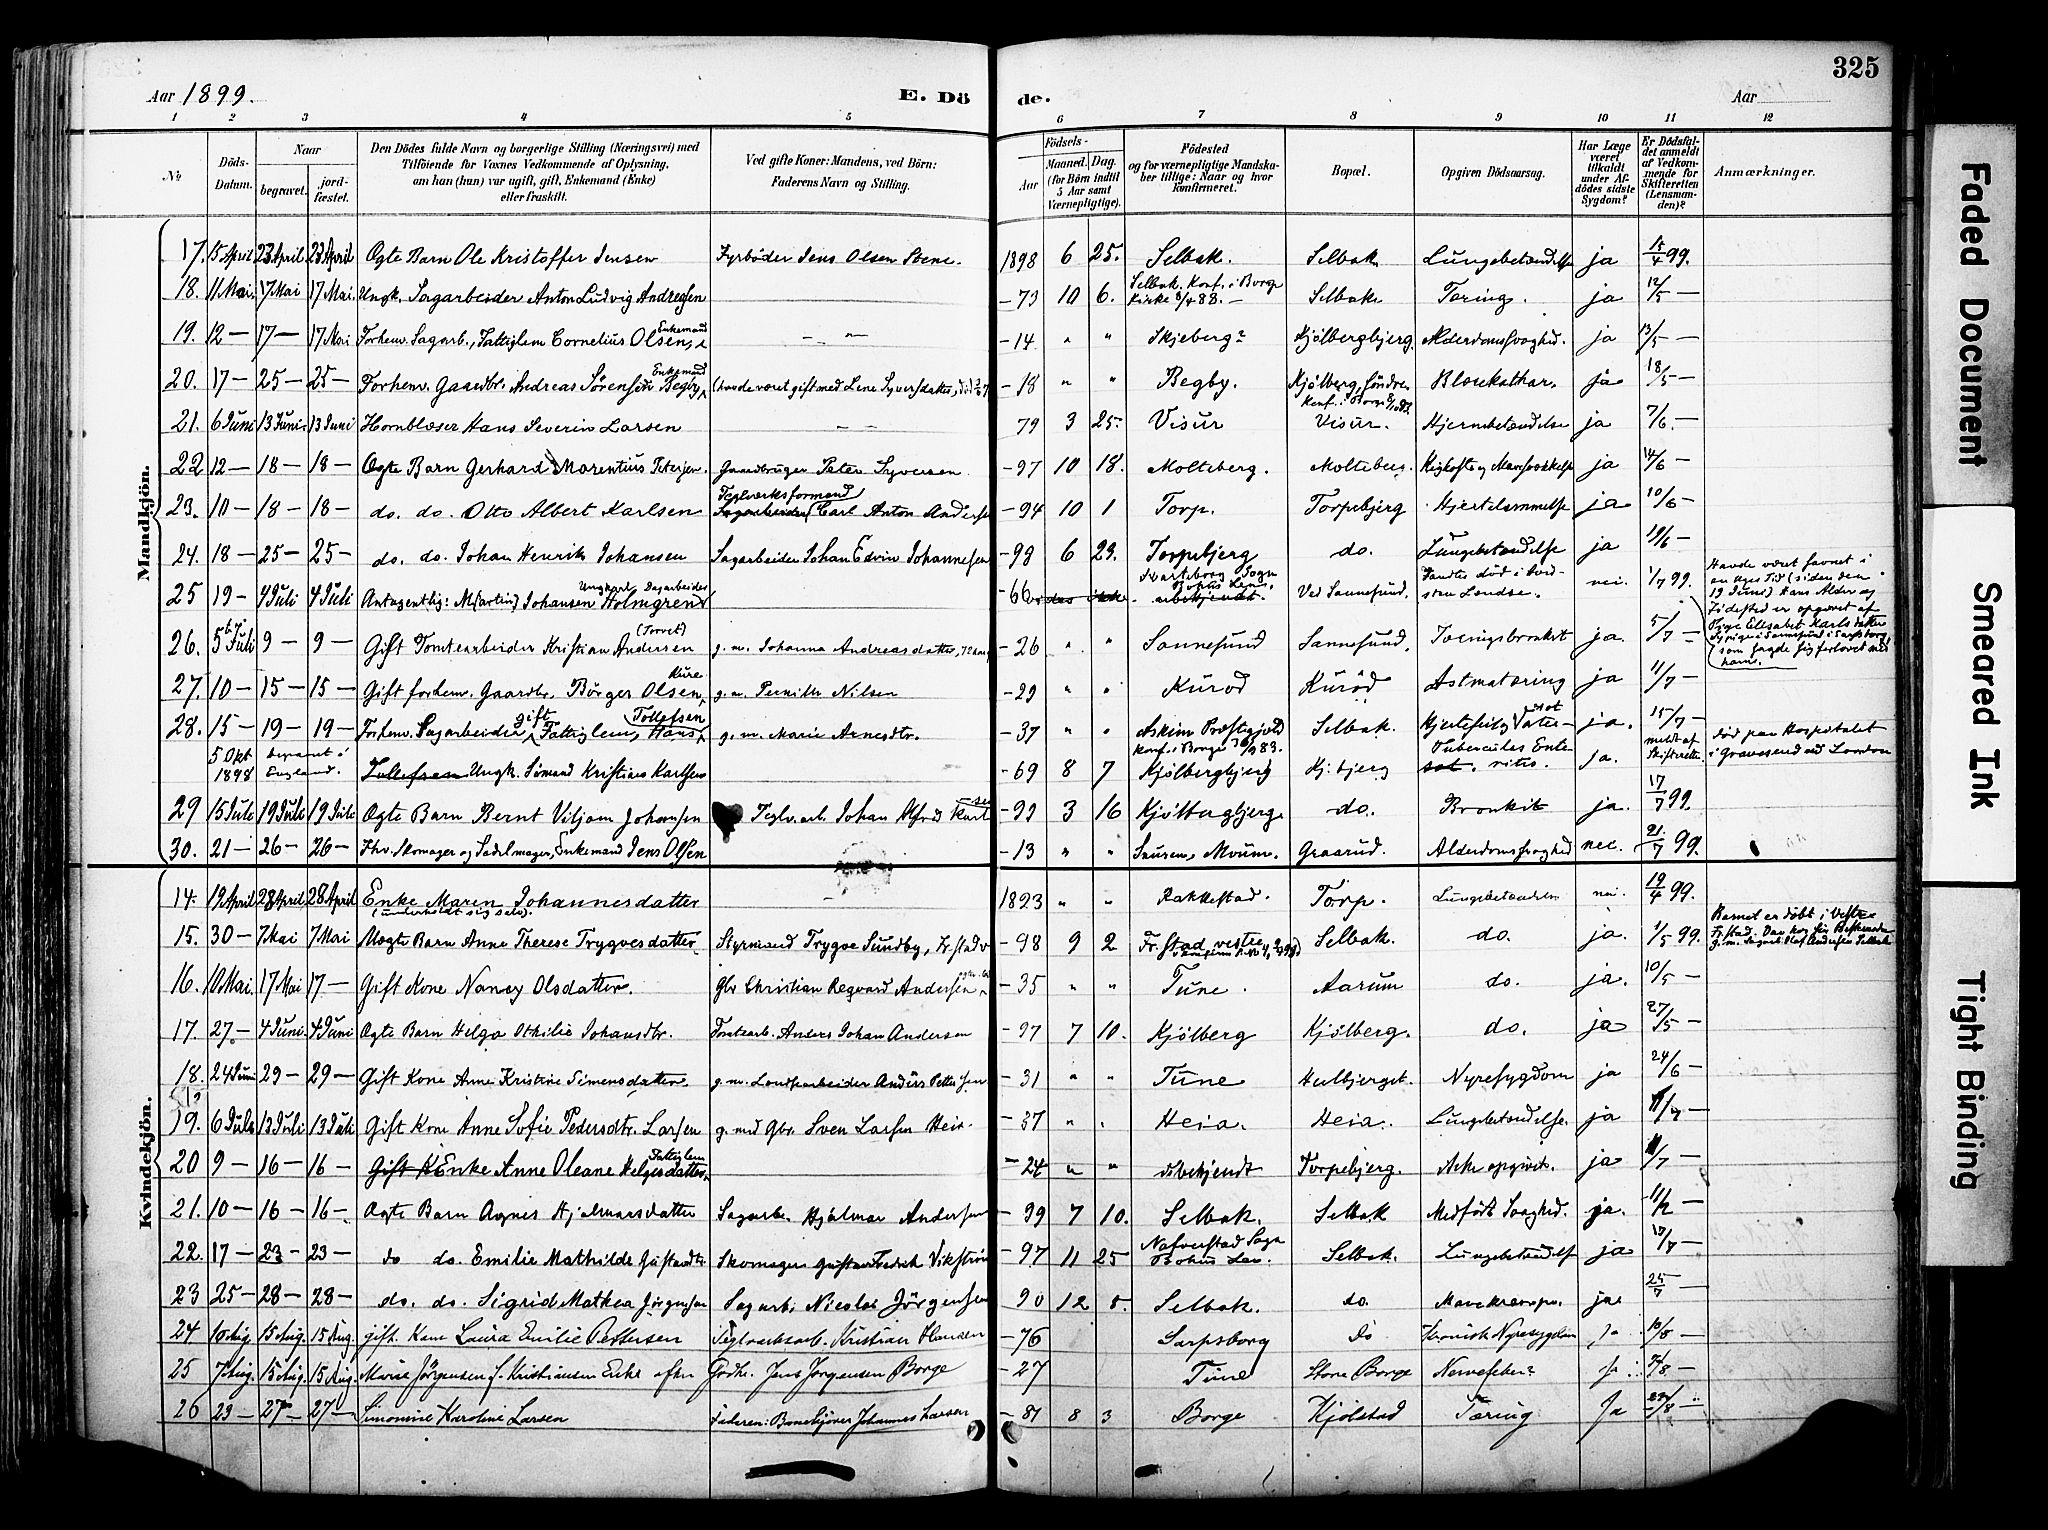 325
Aar 1899. E. Döde. Aar
1 2 3 4 5 6 7 8 9 10 11 12
No
Döds-Datum.
Naar
begravet.
jord-fæstet.
Den Dödes fulde Navn og borgerlige Stilling (Næringsvei) med
Tilföiende for Voxnes Vedkommende af Oplysning,
om han (hun) var ugift, gift, Enkemand (Enke)
eller fraskilt.
Ved gifte Koner: Mandens, ved Börn:
Faderens Navn og Stilling.
Födsels-
Aar
Maaned. Dag.
(for Börn indtil
5 Aar samt
Værnepligtige).
Födested
og for værnepligtige Mandska-
ber tillige: Naar og hvor
konfirmeret.
Bopæl.
Opgiven Dödsaarsag.
Har Læge
været
tilkaldt
under Af-
dödes sidste
Sygdom?
Er Dödsfal-
det anmeldt
af Vedkom-
mende for
Skifteretten
(Lensman-
den)?
Anmærkninger.
Mandkjön.
17. 15 April 23 April 23 April Ægte Barn Ole Kristoffer Jensen Fyrböder Jens Olsen Stene. 1898 6 25. Selbak. Selbak Lungebetændelse ja 15/4 99.
18. 11 Mai. 17 Mai 17 Mai. Ungk. Sagarbeider Anton Ludvig Andresen -73 10 6. Selbak. Konf. i Borge Kirke 8/4 88. - Selbak Tæring. ja 12/5 -
19. 12 - 17 - 17 Mai Forhenv. Sagarb., Fattiglem Cornelius Olsen, Enkemand - " - -14 " " Skjeberg? Kjölbergbjerg. Alderdomssvaghed. ja 13/5 -
20. 17 - 25 - 25 - Forhenv. Gaardbr. Andreas Sörensen Begby, Enkemand (havde været gift med Lene Syversdatter, -18 " " Begby. Kjölberg, söndre Blærekathar. ja 18/5 -
21. 6 Juni 13 Juni. 13 Juni Hornblæser Hans Severin Larsen - - 79 3 25. Konf. i Borge Visur Visur. Hjernebetændelse ja 7/6. -
22 12 - 18 - 18 - Ægte Barn Gerhard Marentius Petersen. Gaardbruger Peter Syversen. -97 10 18. Molteberg. Molteberg. Kighoste og ja 14/6 -
23. 10 - 18 - 18 - do. do. Otto Albert Karlsen Teglværksformand Sagarbeider Carl Anton Andersen -94 10 1 Torp. Torpebjerg Hjertelammelse ja 10/6 -
24. 18 - 25 - 25 - do. do. Johan Henrik Johansen Sagarbeider Johan Edvin Johannesen -98 6 29. Torpebjerg do. Lungebetændelse ja 19/6 -
25 19 - 4 Juli 4 Juli Antagentlig: M(artin) Johansen Holmgren Ungkarl Dagarbeider -66 Svarteborg Sogn Bohus Len. Ved Sannesund. nei. 1/7 99. Havde været savnet i
19 Juni) Hans Alder og
Födested er opgivet af
Pige Elisabet Karlsdatter
som sagde sig forlovet med
ham.
26. 5 Juli 9 - 9 - Gift Tomtearbeider Kristian Andersen (Torvet) g. m. Johanna Andreasdatter, 72 -26 " " Sannesund Sannesund. Tæringsbronkit ja. 5/7 -
27. 10 - 15 - 15 - Gift forhenv. Gaardbr. Börger Olsen Kure g. m. Pernille Nilsen -29 " " Kuröd Kuröd Astmatæring ja 11/7 -
28. 15 - 19 - 19 - Forhenv. Sagarbeider, gift Fattiglem, Hans Tollefsen g. m. Marie Arnesdtr. -37 " " Askim Præstegjeld Selbak. Hjertefeil, Vatersot ja. 15/7 -
5 Okt 1898 begravet i England. Tollefsen Ungk. Sömand Kristian Karlsen -69 8 7 Konf. i Borge 83. Kjölbergbjerg Kj. bjerg Tuberculös Enteritis. ja. meldt af Skifteretten Död paa Hospitalet
i Gravesend ved London
29 15 Juli 19 Juli 19 Juli Ægte Barn Bernt Viljam Johansen Teglv.arb. Johan Alfred Karlsen -99 3 16 Kjölbergbjerg do. Bronkit ja. 17/7 99.
30. 21 - 26 - 26 - Fhv. Skomager og Sadelmager, Enkemand Jens Olsen -13 " " Moum. Graarud. Alderdomssvaghed nei. 21/7 99.
Kvindekjön.
14. 19 April 28 April 28 April Enke Maren Johannesdatter (underholdt sig selv). - 1823 " " Rakkestad. Torp. Lungebetændelse nei. 19/4 99.
15. 30 - 7 Mai 7 Mai Uægte Barn Anne Therese Trygvesdatter Styrmand Trygve Sundby, Fr.stad -98 9 2 Fr.stad vestre Selbak. do. ja. 1/5 99. Barnet er döbt i Vestre
Fr.stad.
16. 10 Mai. 17 Mai 17 - Gift Kone Nancy Olsdatter. Gbr Christian Regvard Andersen -35 " " Tune. Aarum do. ja. 10/5 -
17. 27. 4 Juni. 4 Juni Ægte Barn Helga Othilie Johansdtr. Tomtearb. Anders Johan Andersen -97 7 10. Kjölberg Kjölberg. do. ja 27/5 -
18. 24 Juni 29 - 29 - Gift Kone Anne Kristine Simensdatter. g. m. Landarbeider Anders Pettersen -31 " " Tune Nyresygdom ja 24/6 -
19. 6 Juli 13 Juli 13 Juli Gift Kone Anne Sofie Pedersdtr. Larsen g. med Gbr. Sven Larsen Heia. -37 " " Heia. Heia. Lungebetændelse. ja 11/7 -
20 9 - 16 - 16 - Gift K Enke Anne Oleane Helgesdatter, Fattiglem -24 " " Ubekjendt Torpebjerg. Ikke opgivet. ja 11/7 -
21. 10 - 16 - 16 - Ægte Barn Agnes Hjalmarsdatter Sagarb. Hjalmar Andersen -99 7 10. Selbak. Selbak Medfödt Svaghed. ja. 11/2 -
22. 17 - 23 - 23 - do do. Emilie Mathilde Gustavdtr. Skomager Gustav Fredrik Vikström -97 11 25 Naverstad Sogn Bohus Len. Selbak. Lungebetændelse ja 17/7 -
23 25 - 28 - 28 - do. do. Sigrid Mathea Jörgensen Sagarb. Nicolai Jörgensen 90 12 5. Selbak. do. Mavekrampe. ja 25/7 -
24 10 Aug. 15 Aug. 15 Aug. gift. Kone Laura Emilie Pettersen Teglværksarb. Kristian Hansen -76 Sarpsborg do Kronisk Nyresygdom ja 10/8 -
25 7 Aug. 15 Aug. 15 Aug. Marie Jörgensen f. Kristiansen Enke efter Gbr. Jens Jörgensen Borge -27 Tune Store Borge Nervefeber? Ja /8 -
26 23 - 27 - 27 - Simonine Karoline Larsen Faderen: Banevogter Johannes Larsen -81 8 3 Borge Kjölstad Tæring Ja 27/8 -
Faded Document
Smeared Ink
Tight Binding